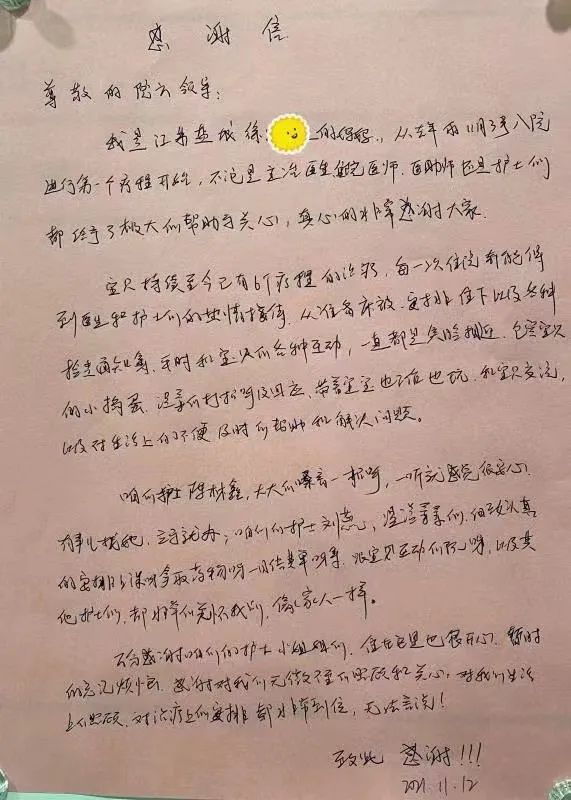 感谢信
尊敬的院方领导：
我是江苏盐城徐 的妈妈，从去年的11月3号入院
进行第一个疗程开始，不论是主治医生住院医师、医助师还是护士们
都给予了极大的帮助与关心，真心的非常感谢大家。
宝贝持续至今已有6个疗程的治疗，每一次住院都能得
到医生和护士们的热情接待，从准备床放、安排住下以及各种
检查通知单，平时和宝贝的各种互动，一直都是笑脸相迎，包容宝贝
的小捣蛋、温柔的打招呼及回应，带着宝宝也 也玩，和宝贝交流，
以及对生活上的不便及时的帮助和解决问题。
咱们护士陈林鑫，大大的嗓音一招呼，一听就感觉很安心，
有事儿找她，立马就办；咱们的护士刘 ，温温柔柔的，细致认真
的安排 单呀等，跟宝贝互动的玩呀，以及其
他护士们，都非常的关怀我们，像家人一样。
万分感谢咱们的护士小姐姐们，住在这里也很开心，暂时
的忘记烦恼，感谢对我们无微不至的照顾和关心，对我们生活
上的照顾，对治疗上的安排都非常到位，无法言说！
致此 感谢！！！
2021.11.12